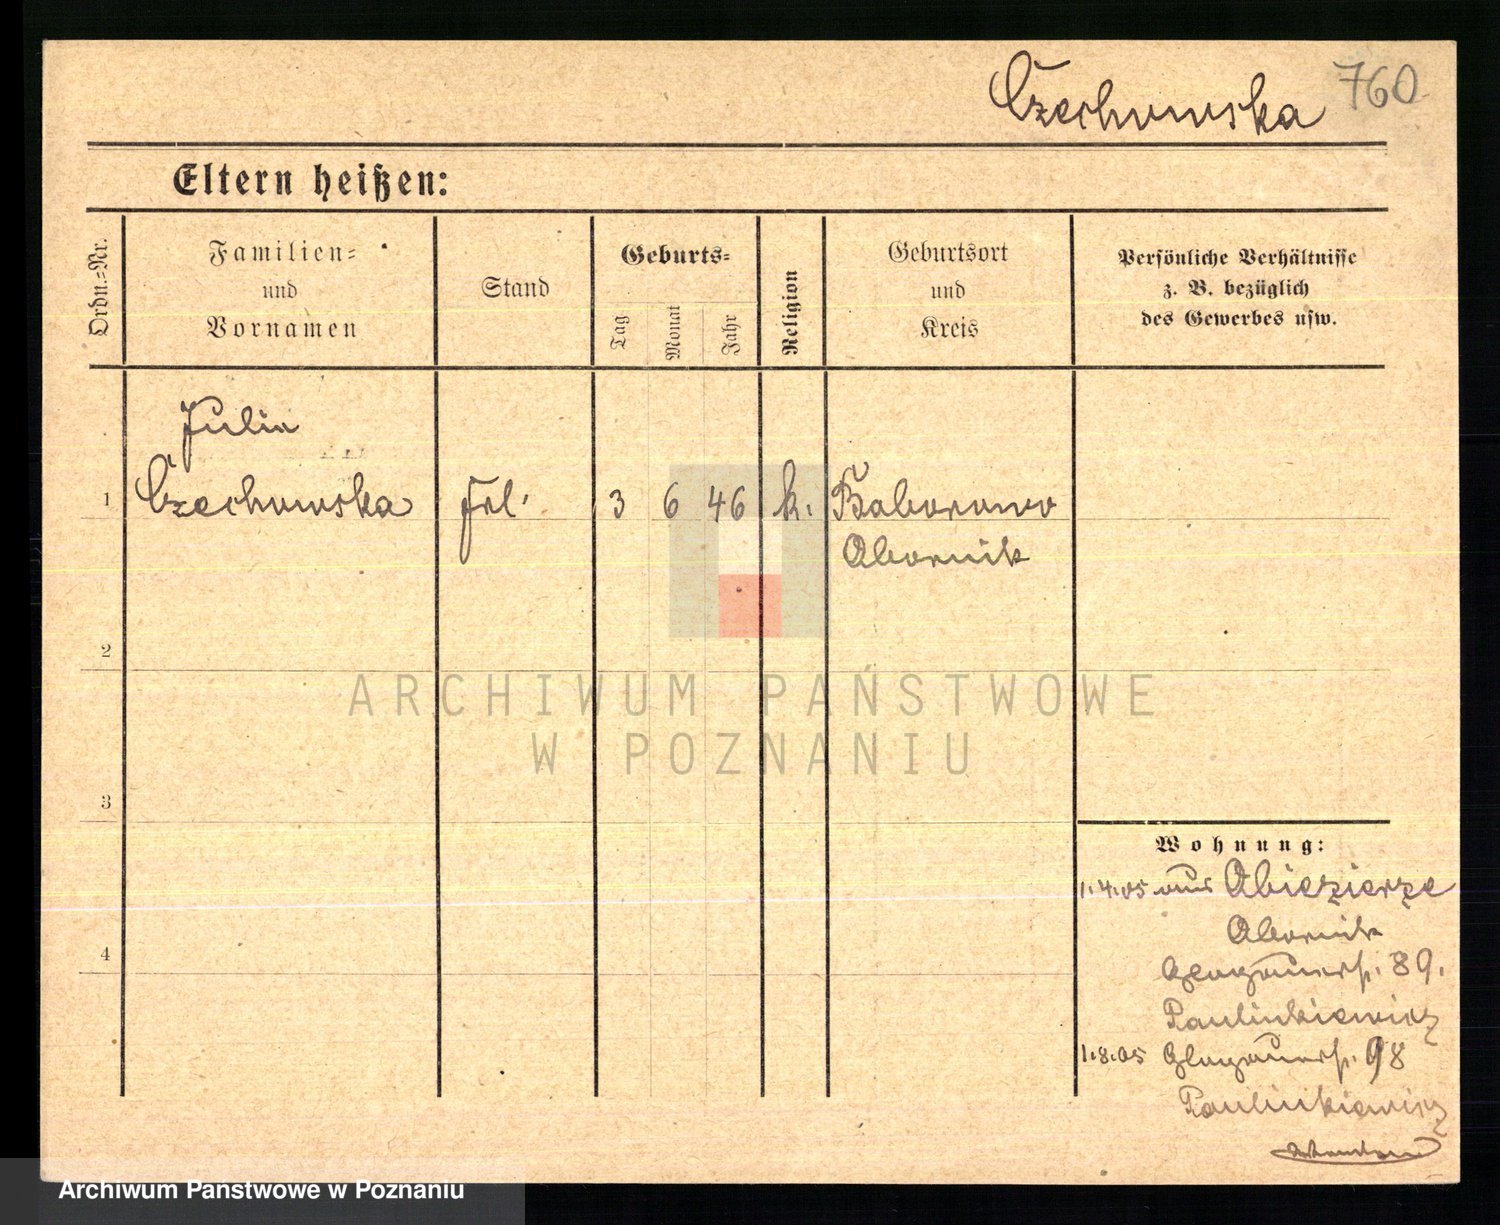 Czechowska 760
Eltern heißen:
Ordn.=Nr.
Familien=
und
Vornamen
Stand
Geburts=
Tag
Monat
Jahr
Religion
Geburtsort
und
Kreis
Persönliche Verhältnisse
z. B. bezüglich
des Gewerbes usw.
Julia
1 Czechowska Frl. 3 6 46 k. Baborowo
Obornik
2
ARCHIWUM PAŃSTWOWE
W POZNANIU
3
Wohnung:
1.4.05 aus Obiezierze
Obornik
4
Glogauerst. 89.
Paulinkiewicz
1.8.05 Glogauerst. 98
Paulinkiewicz
Archiwum Państwowe w Poznaniu